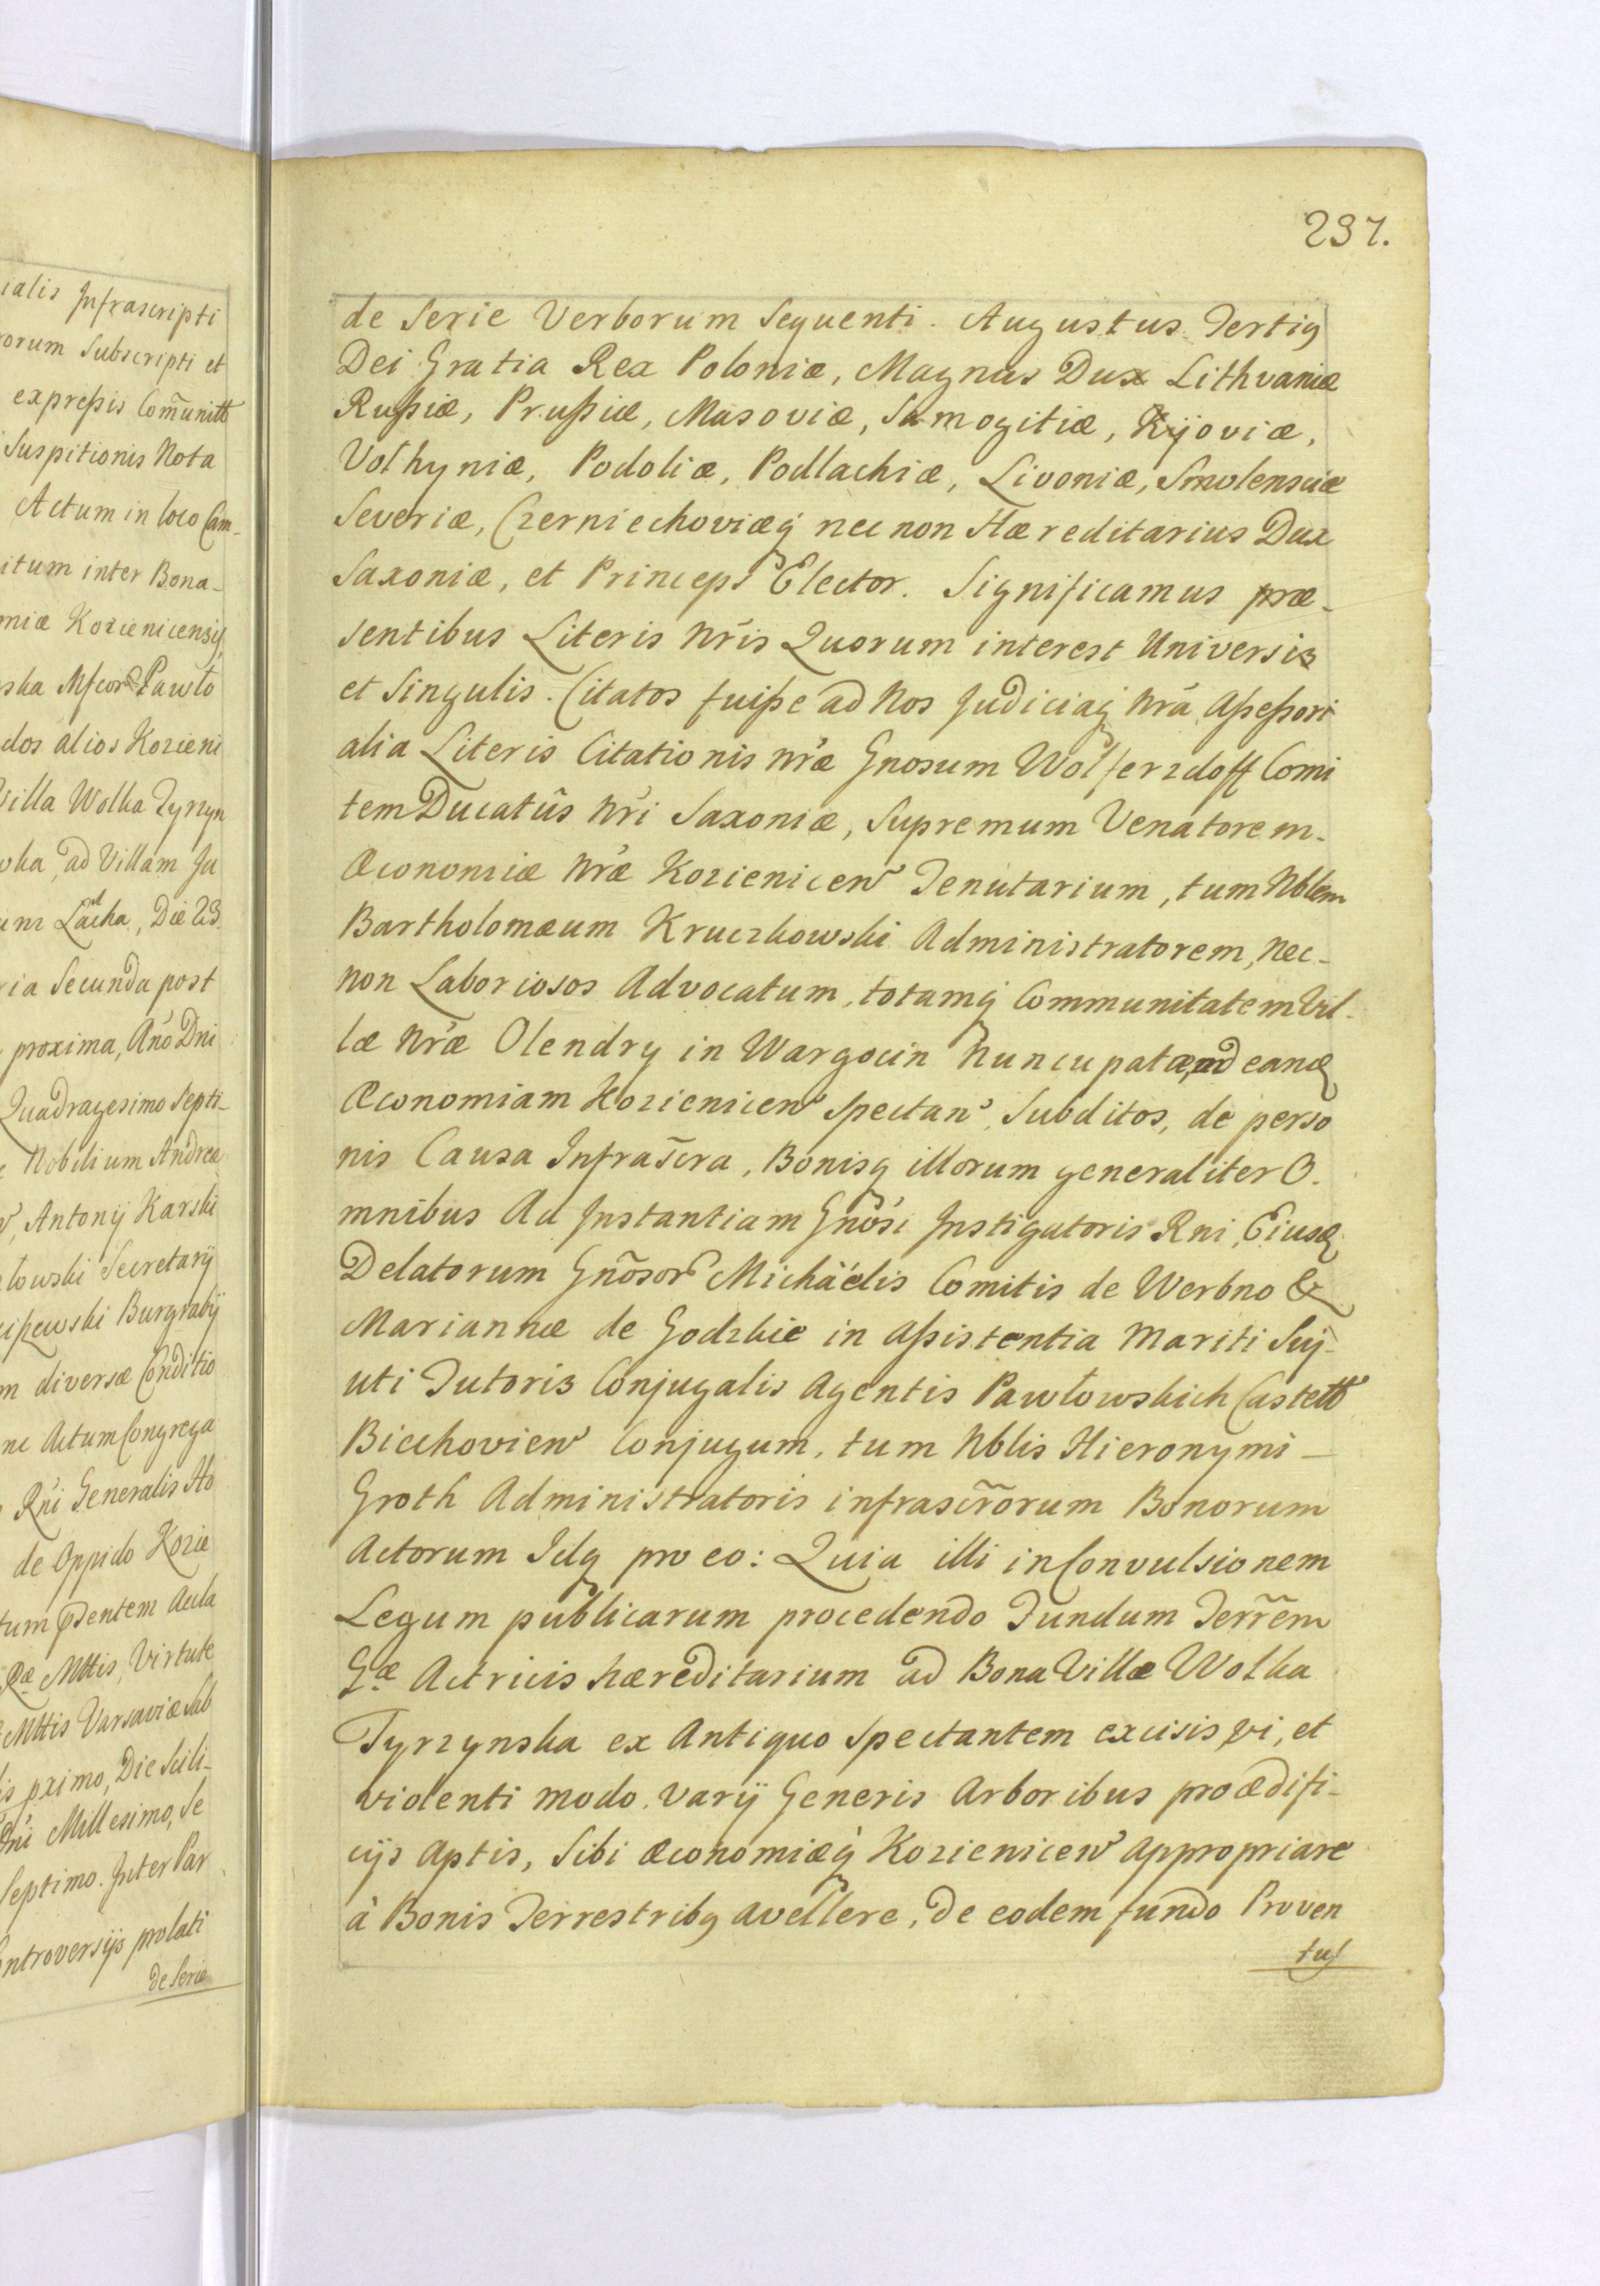 ialis Infrascripti
orum Subscripti et
expreßis Com̃unitt
Suspitionis Nota
Actum in loco Cam-
itum inter Bona-
miæ Kozienicensis,
ska Mscor Pawło
dos alios Kozieni
Villa Wolka Tyrzyn
ska, ad Villam Ja
um Łacha, Die 23.
ria Secunda post
proxima, Año Dni
Quadragesimo Septi-
Nobilium Andreæ
Antonij Karski
łowski Secretarij
Burgrabij
m diversæ Conditio
nc Actum Congrega
Rñi Generalis Ho
de Oppido Kozie
tum pdentem Acta
Ræ Mttis, Virtute
Mttis Varsaviæ sub
is pximo, Die Scili-
Dni Millesimo, Se
Septimo. Inter Par
ontroversijs prolati
de Serie
237.
de Serie Verborum Sequenti. Augustus Tertiq
Dei Gratia Rex Poloniæ, Magnus Dux Lithvaniæ
Rußiæ, Prußiæ, Masoviæ, Samogitiæ, Kijoviæ,
Volhyniæ, Podoliæ, Podlachiæ, Livoniæ, Smolensciæ
Severiæ, Czerniechoviæq́ nec non Hæreditarius Dux
Saxoniæ, et Princeps Elector. Significamus præ-
sentibus Literis Nr̃is Quorum interest Universis
et Singulis. Citatos fuiße ad Nos Judiciaq́ Nrã Aßeßori
alia Literis Citationis Nr̃æ Gnosum Wolferzdoff Comi
tem Ducatûs Nr̃i Saxoniæ, Supremum Venatorem.
Œconomiæ Nr̃æ Kozienicen̄ Tenutarium, tum Nblem
Bartholomæum Kruczkowski Administratorem, Nec-
non Laboriosos Advocatum, totamq́ Communitatem Vil-
læ Nr̃æ Olendry in Wargocin Nuncupatæ, ad eand
Œconomiam Kozienicen̄ Spectan̄, Subditos, de perso
nis Causa Infras̃cra, Bonisq illorum generaliter O-
mnibus Ad Instantiam Gnõsi Instigatoris Rni, Eiusq
Delatorum Gñosor Michäelis Comitis de Werbno &
Mariannæ de Godzkie in Aßistentia Mariti Suj-
uti Tutoris Conjugalis Agentis Pawłowskich Castell
Biechovien̄ Conjugum, tum Nblis Hieronymi-
Groth Administratoris infrascr̃orum Bonorum
Actorum Idq pro eo: Quia illi in Convulsionem
Legum publicarum procedendo Fundum Terr̃em
Gæ Actricis hæreditarium ad Bona Villæ Wolka
Tyrzynska ex Antiquo Spectantem excisis vi, et
violenti modo varij Generis Arboribus pro ædifi-
cijs Aptis, Sibi Œconomiæq́ Kozienicen̄ Appropriare
à Bonis Terrestribq avellere, de eodem fundo Proven
tus